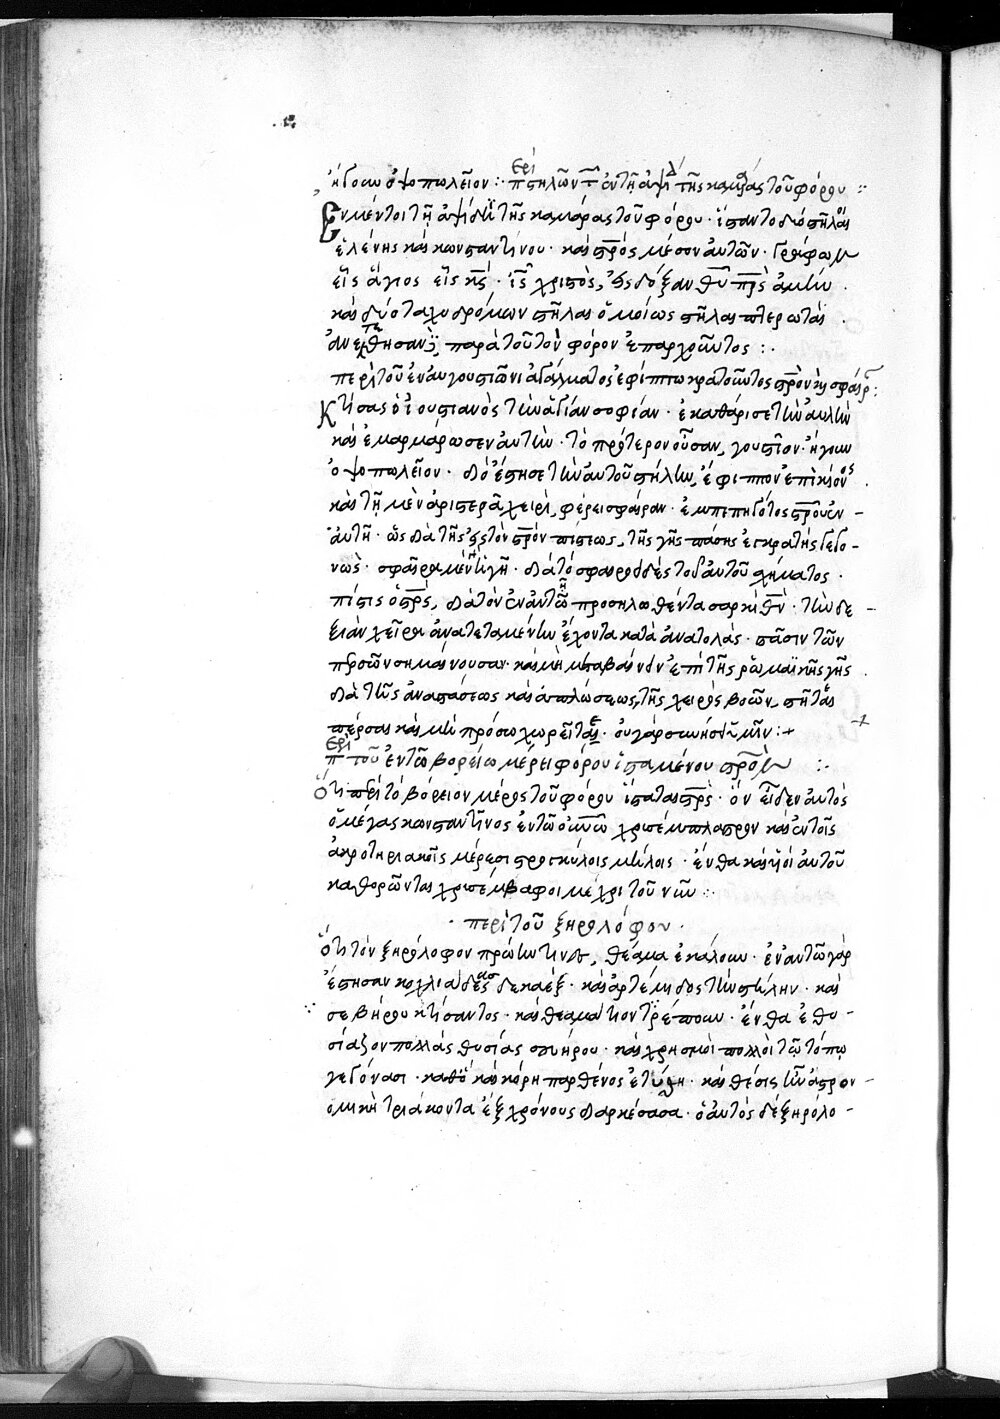 ἤγουν ὀψοπωλεῖον : περὶ στηλῶν τῶν ἐν τῇ ἀψίδι τῆς καμάρας τοῦ φόρου :
Ἐν μέντοι τῇ ἀψίδι τῆς καμάρας τοῦ φόρου · ἵσταντο δύο στῆλαι
ἑλένης καὶ κωνσταντίνου · καὶ σταυρὸς μέσον αὐτῶν · γράφων
εἷς ἅγιος εἷς κς · ις χριστὸς, εἰς δόξαν θυ πρς ἀμήν .
καὶ δύο ταχυδρόμων στῆλας ὁμοίως στῆλας πτερωτὰς .
παρὰ τοῦ τὸν φόρον ἐπαρχοῦντος :
περὶ τοῦ ἐν αὐγουστιῶνι ἀγάλματος ἐφίππου κρατοῦντος σταυρὸν καὶ σφαῖρ :
Κτίσας ὁ ἰουστιανὸς τὴν ἁγίαν σοφίαν · ἐκαθάρισε τὴν αὐλὴν
καὶ ἐμαρμάρωσεν αὐτὴν · τὸ πρότερον οὖσαν, γουστεῖον · ἤγουν
ὀψοπωλεῖον · διὸ ἔστησε τὴν αὐτοῦ στήλην, ἔφιππον ἐπὶ κίονος .
καὶ τῇ μὲν ἀριστερᾷ χειρὶ, φέρει σφαῖραν · ἐμπεπηγότος σταυροῦ ἐν -
αὐτῇ · ὡς διὰ τῆς εἰς τὸν σταυρὸν πίστεως, τῆς γῆς πάσης ἐγκρατὴς γεγο -
νώς · σφαῖρα μὲν ἡ γῆ · διὰ τὸ σφαιροειδὲς τοῦ αὐτοῦ σχήματος ·
πίστις ὁ στρς, διὰ τὸν ἐν αὐτῷ προσηλωθέντα σαρκὶ θν · τὴν δε -
ξιὰν χεῖρα ἀνατεταμένην ἔχοντα κατὰ ἀνατολὰς · στάσιν τῶν
περσῶν σημαίνουσαν · καὶ μὴ μεταβαίνειν ἐπὶ τῆς ῥωμαϊκῆς γῆς .
διὰ τῆς ἀναστάσεως καὶ ἁπλώσεως, τῆς χειρὸς βοῶν, στῆτε
πέρσαι καὶ μὴ πρόσω χωρεῖτε · οὐ γὰρ συνήσει ὑμῖν : +
περὶ τοῦ ἐν τῷ βορείῳ μέρει φόρου ἱσταμένου σταυροῦ :
Ὅτι περὶ τὸ βόρειον μέρος τοῦ φόρου ἵσταται στρς · ὃν εἶδεν αὐτὸς
ὁ μέγας κωνσταντῖνος ἐν τῷ ουνῶ χρυσέμπλαστρον καὶ ἐν τοῖς
ἀκροτηριακοῖς μέρεσι στρογγύλοις μήλοις · ἔνθα καὶ υἱοὶ αὐτοῦ
καθορῶνται χρυσέμβαφοι μέχρι τοῦ νῦν :
· περὶ τοῦ ξηρολόφου ·
Ὅτι τὸν ξηρόλοφον πρώην τινὲς, θέαμα ἐκάλουν · ἐν αὐτῷ γὰρ
ἔστησαν κοχλιαδεις δεκαέξ · καὶ ἀρτέμιδος τὴν στήλην · καὶ
σεβήρου κτίσαντος · καὶ θεαμάτιον τρέπουν · ἔνθα ἐθυ -
σίαζον πολλὰς θυσίας σευήρου · καὶ χρησμοὶ πολλοὶ τῷ τόπῳ
γεγόνασι · καθὃ καὶ κόρη παρθένος ἐτύθη · καὶ θέσις ἦν ἀστρον -
ομικὴ τριάκοντα ἓξ χρόνους διαρκέσασα · ὁ αὐτὸς δὲ ξηρόλο -